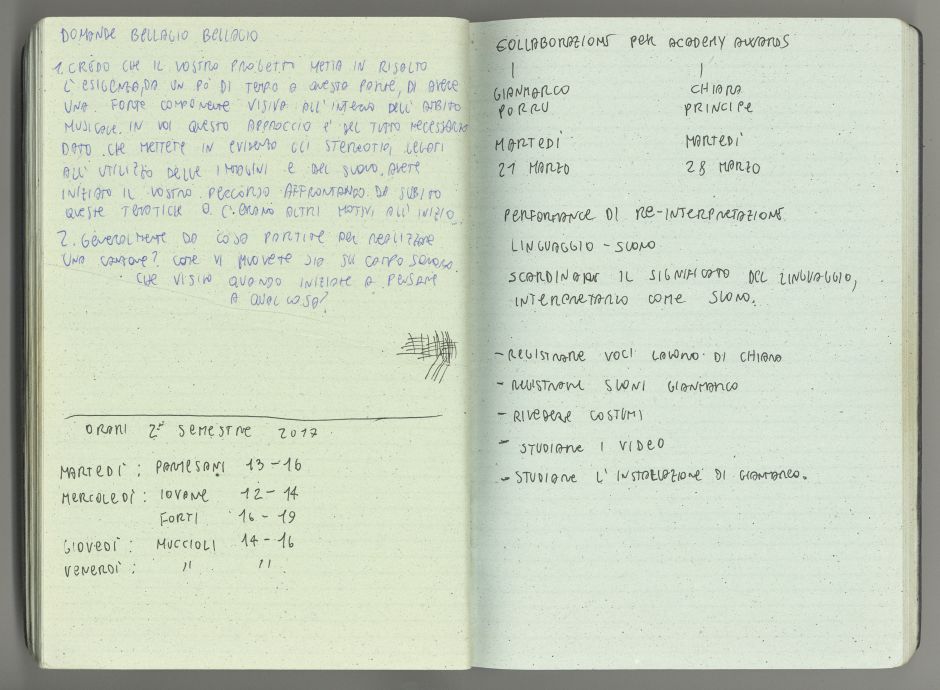 DOMANDE BELLAGIO BELLAGIO
1. CREDO CHE IL VOSTRO PROGETTI METTA IN RISALTO
L'ESIGENZA, DA UN PÒ DI TEMPO A QUESTA PARTE, DI AVERE
UNA FORTE COMPONENTE VISIVA ALL'INTERNO DELL'AMBITO
MUSICALE. IN VOI QUESTO APPROCCIO È DEL TUTTO NECESSARIO
DATO CHE METTERE IN EVIDENZA GLI STEREOTIPI LEGATI
ALL'UTILIZZO DELLE IMMAGINI E DEL SUONO. AVETE
INIZIATO IL VOSTRO PERCORSO AFFRONTANDO DA SUBITO
QUESTE TEMATICHE O C'ERANO ALTRI MOTIVI ALL'INIZIO
2. GENERALMENTE DA COSA PARTITE PER REALIZZARE
UNA CANZONE? COME VI MUOVETE SIA SU CAMPO SONORO
CHE VISIVO QUANDO INIZIATE A PENSARE
A QUALCOSA?
ORARI 2° SEMESTRE 2017
MARTEDÌ: PARMESANI 13-16
MERCOLEDÌ: IOVANE 12-14
FORTI 16-19
GIOVEDÌ: MUCCIOLI 14-16
VENERDÌ: " "
COLLABORAZIONI PER ACADEMY AWARDS
GIANMARCO CHIARA
PORRU PRINCIPE
MARTEDÌ MARTEDÌ
21 MARZO 28 MARZO
PERFORMANCE DI RE-INTERPRETAZIONE
LINGUAGGIO - SUONO
SCARDINARE IL SIGNIFICATO DEL LINGUAGGIO,
INTERPRETARLO COME SUONO.
- REGISTRARE VOCI LAVORO DI CHIARA
- REGISTRARE SUONI GIANMARCO
- RIVEDERE COSTUMI
- STUDIARE I VIDEO
- STUDIARE L'INSTALLAZIONE DI GIANMARCO.